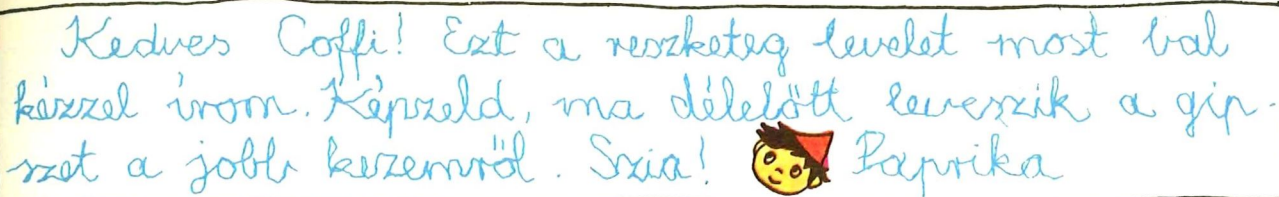 Kedves Coffi! Ezt a reszketeg levelet most bal
kézzel írom. Képzeld, ma délelőtt leveszik a gip-
szet a jobb kezemről. Szia! Paprika